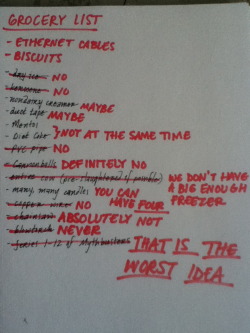 GROCERY LIST
- ETHERNET CABLES
- BISCUITS
- dry ice - NO
- NO
- nondairy creamer MAYBE
- duct tape MAYBE
- Mentos
- Diet Coke } NOT AT THE SAME TIME
- PVC pipe NO
- Cannonballs DEFINITELY NO
- entire cow (pre-slaughtered if possible) WE DON'T HAVE A BIG ENOUGH FREEZER
- many, many candles YOU CAN HAVE FOUR
- copper wire NO
- chainsaw ABSOLUTELY NOT
- blowtorch NEVER
- Series 1-12 of Mythbusters THAT IS THE WORST IDEA